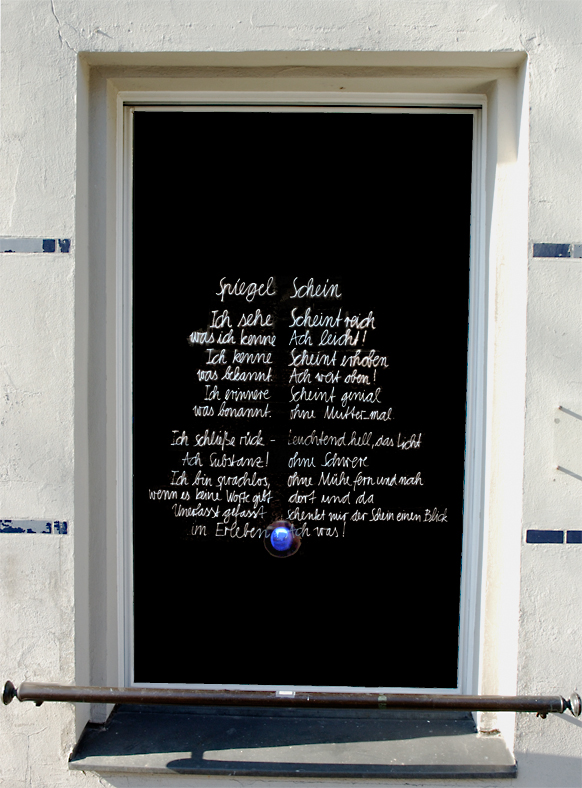 Spiegel Schein
Ich sehe Scheint reich
was ich kenne Ach leicht!
Ich kenne Scheint erhoben
was bekannt Ach weit oben!
Ich erinnere Scheint genial
was benannt. ohne Mutter-mal
Ich schließe rück - Leuchtend hell, das Licht
Ach Substanz! ohne Schwere
Ich bin sprachlos, ohne Mühe fern und nah
wenn es keine Worte gibt dort und da
Unerlasst gefasst schenkt mir der Schein einen Blick
im Erleben Ach was!